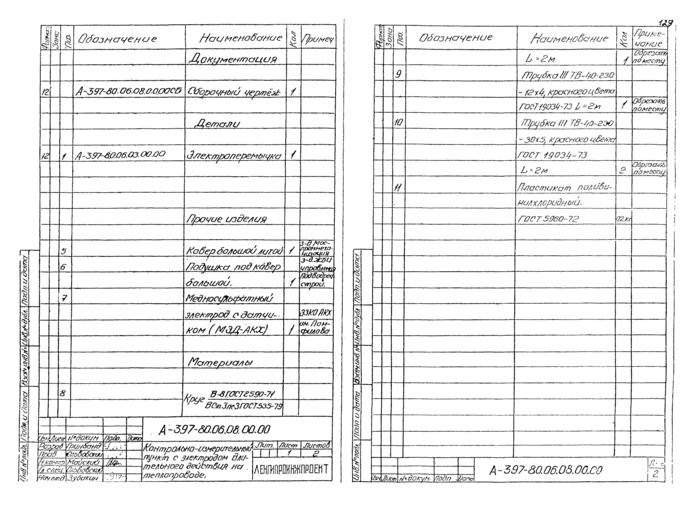 129
Формат
Зона
Поз.
Обозначение
Наименование
Кол
Примеч
Документация
12 А-397-80.06.08.0.000СБ Сборочный чертёж 1
Детали
12 1 А-397-80.06.03.00.00 Электроперемычка 1
Прочие изделия
5 Ковер большой литой 1
6 Подушка под ковер
большой. 1
7 Медносульфатный
электрод с датчи-
ком (МЭД-АКХ) 1
ЭЗКО АКХ
им. Пам-
филова
Материалы
8 Круг В-8 ГОСТ 2590-71
ВСт3пс3 ГОСТ 535-79
А-397-80.06.08.00.00
Изм Лист № докум. Подп. Дата
Контрольно-измерительный
пункт с электродом дли-
тельного действия на
теплопроводе.
Лит. Лист Листов
1 2
ЛЕНГИПРОИНЖПРОЕКТ
Инв.№ подл. Подп. и дата
Подп. и дата
Формат
Зона
Поз.
Обозначение
Наименование
Кол
Приме-
чание
L = 2м 1 Обрезать
по месту
9 Трубка III ТВ-40-230
- 12х4, красного цвета
ГОСТ 19034-73 L = 2м 1 Обрезать
по месту
10 Трубка III ТВ-40-230
- 30х5, красного цвета
ГОСТ 19034-73
L = 2м 2 Обрезать
по месту
11 Пластикат поливи-
нилхлоридный.
ГОСТ 5960-72 0,2кг
Инв.№ подл. Подп. и дата
Подп. и дата
Изм Лист № докум. Подп. Дата
А-397-80.06.08.00.00
2